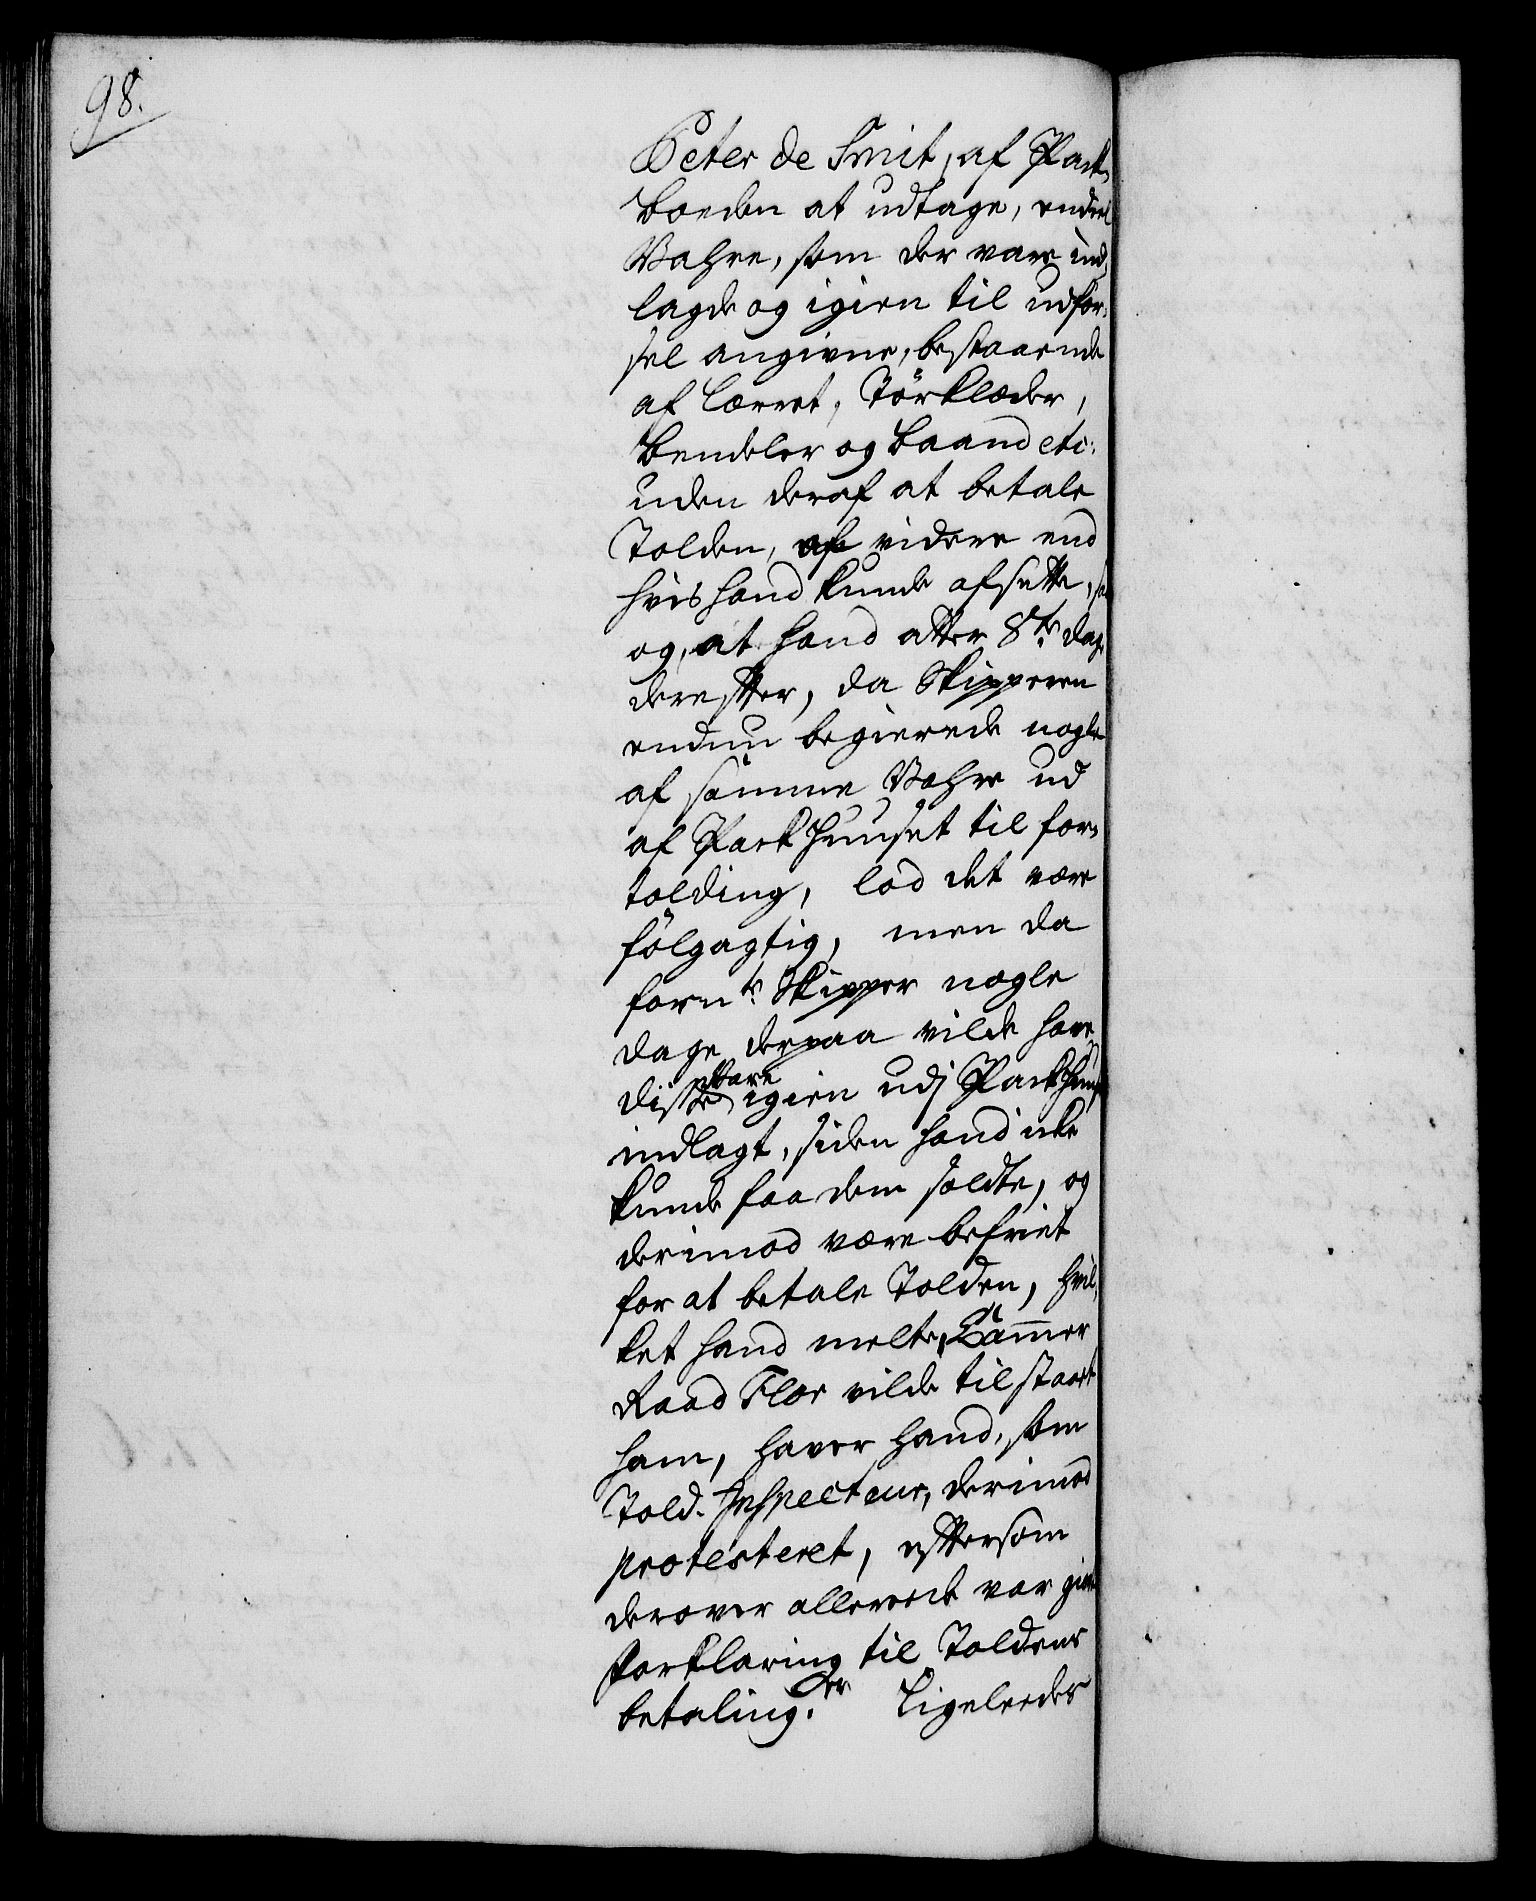 98.
Peter de Smit, af Pack-
boeden at udtage, endeel
Wahre, som der vare ind-
lagde og igien til udfør-
sel angivne, bestaaende
af Lærret, Törklæder,
Bendeler og Baand etc:
uden deraf at betale
Tolden, videre end
hvis hand kunde afsætte, saa
og, at hand atter 8te dage
derefter, da Skipperen
endnu begierede nogle
af samme Wahre ud
af Pack Huuset til for-
tolding, lod det være
fölgagtig, men da
fornte Skipper nogle
dage derpaa vilde have
disse Ware igien udj Packhuuset
indlagt, siden hand icke
kunde faa dem soldte, og
derimod være befriet
for at betale Tolden, hvil-
ket hand melte, Cammer
Raad Flor vilde tilstaaet
ham, haver hand, som
Told-Inspecteur, derimod
protesteret, eftersom
derover allereede var given
Forklaring til Toldens
betaling. Ligeleedes